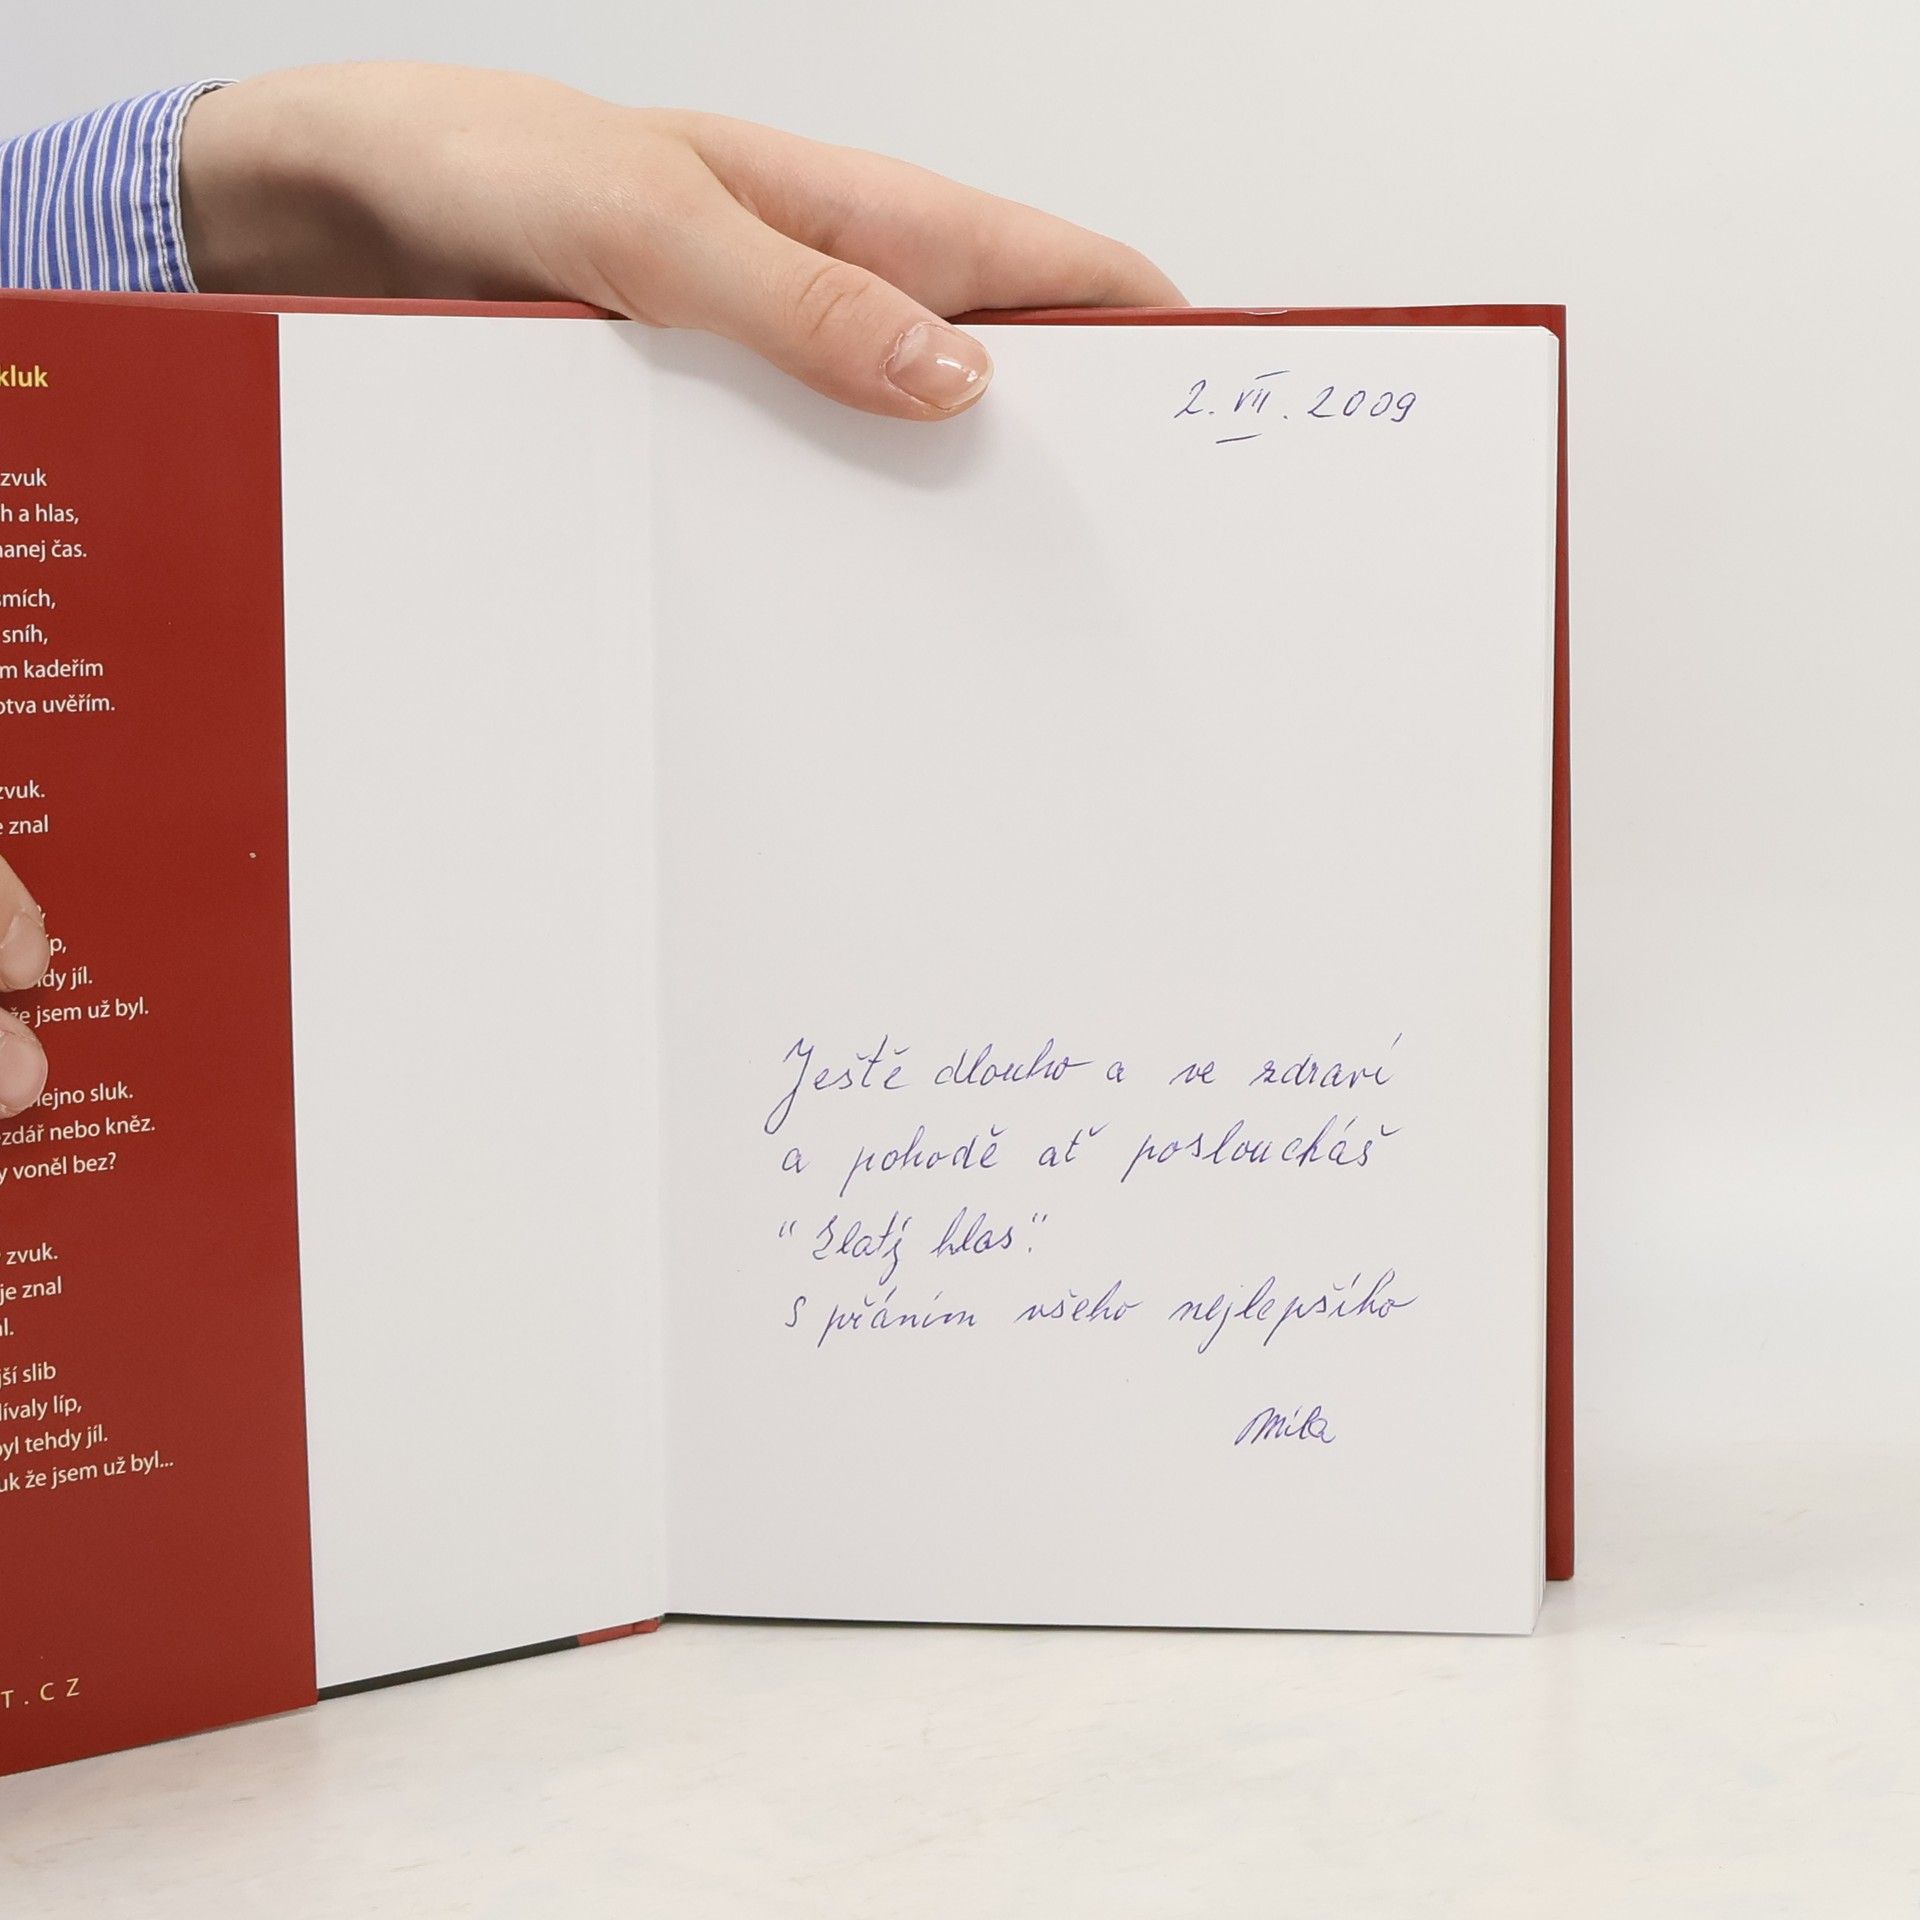 kluk
zvuk
h a hlas,
anej čas.
smích,
sníh,
m kadeřím
otva uvěřím.
zvuk.
e znal
íp,
dy jíl.
že jsem už byl.
ejno sluk.
zdář nebo kněz.
y voněl bez?
zvuk.
je znal
al.
jší slib
lívaly líp,
byl tehdy jíl.
uk že jsem už byl...
T.CZ
2. VII. 2009
Ještě dlouho a ve zdraví
a pohodě ať posloucháš
"Zlatý hlas".
S přáním všeho nejlepšího
Míla